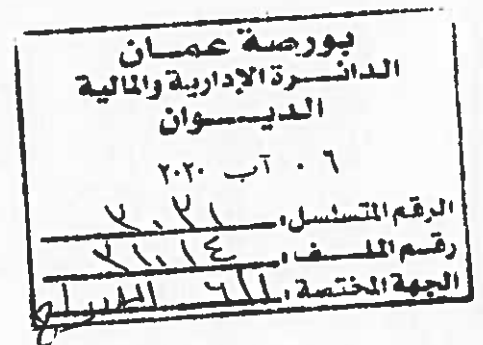 بورصة عمان
الدائرة الإدارية والمالية
الديوان
٠٦ آب ٢٠٢٠
الرقم المتسلسل:
رقم الملف: ٣١٠١٤
الجهة المختصة: الإدراج